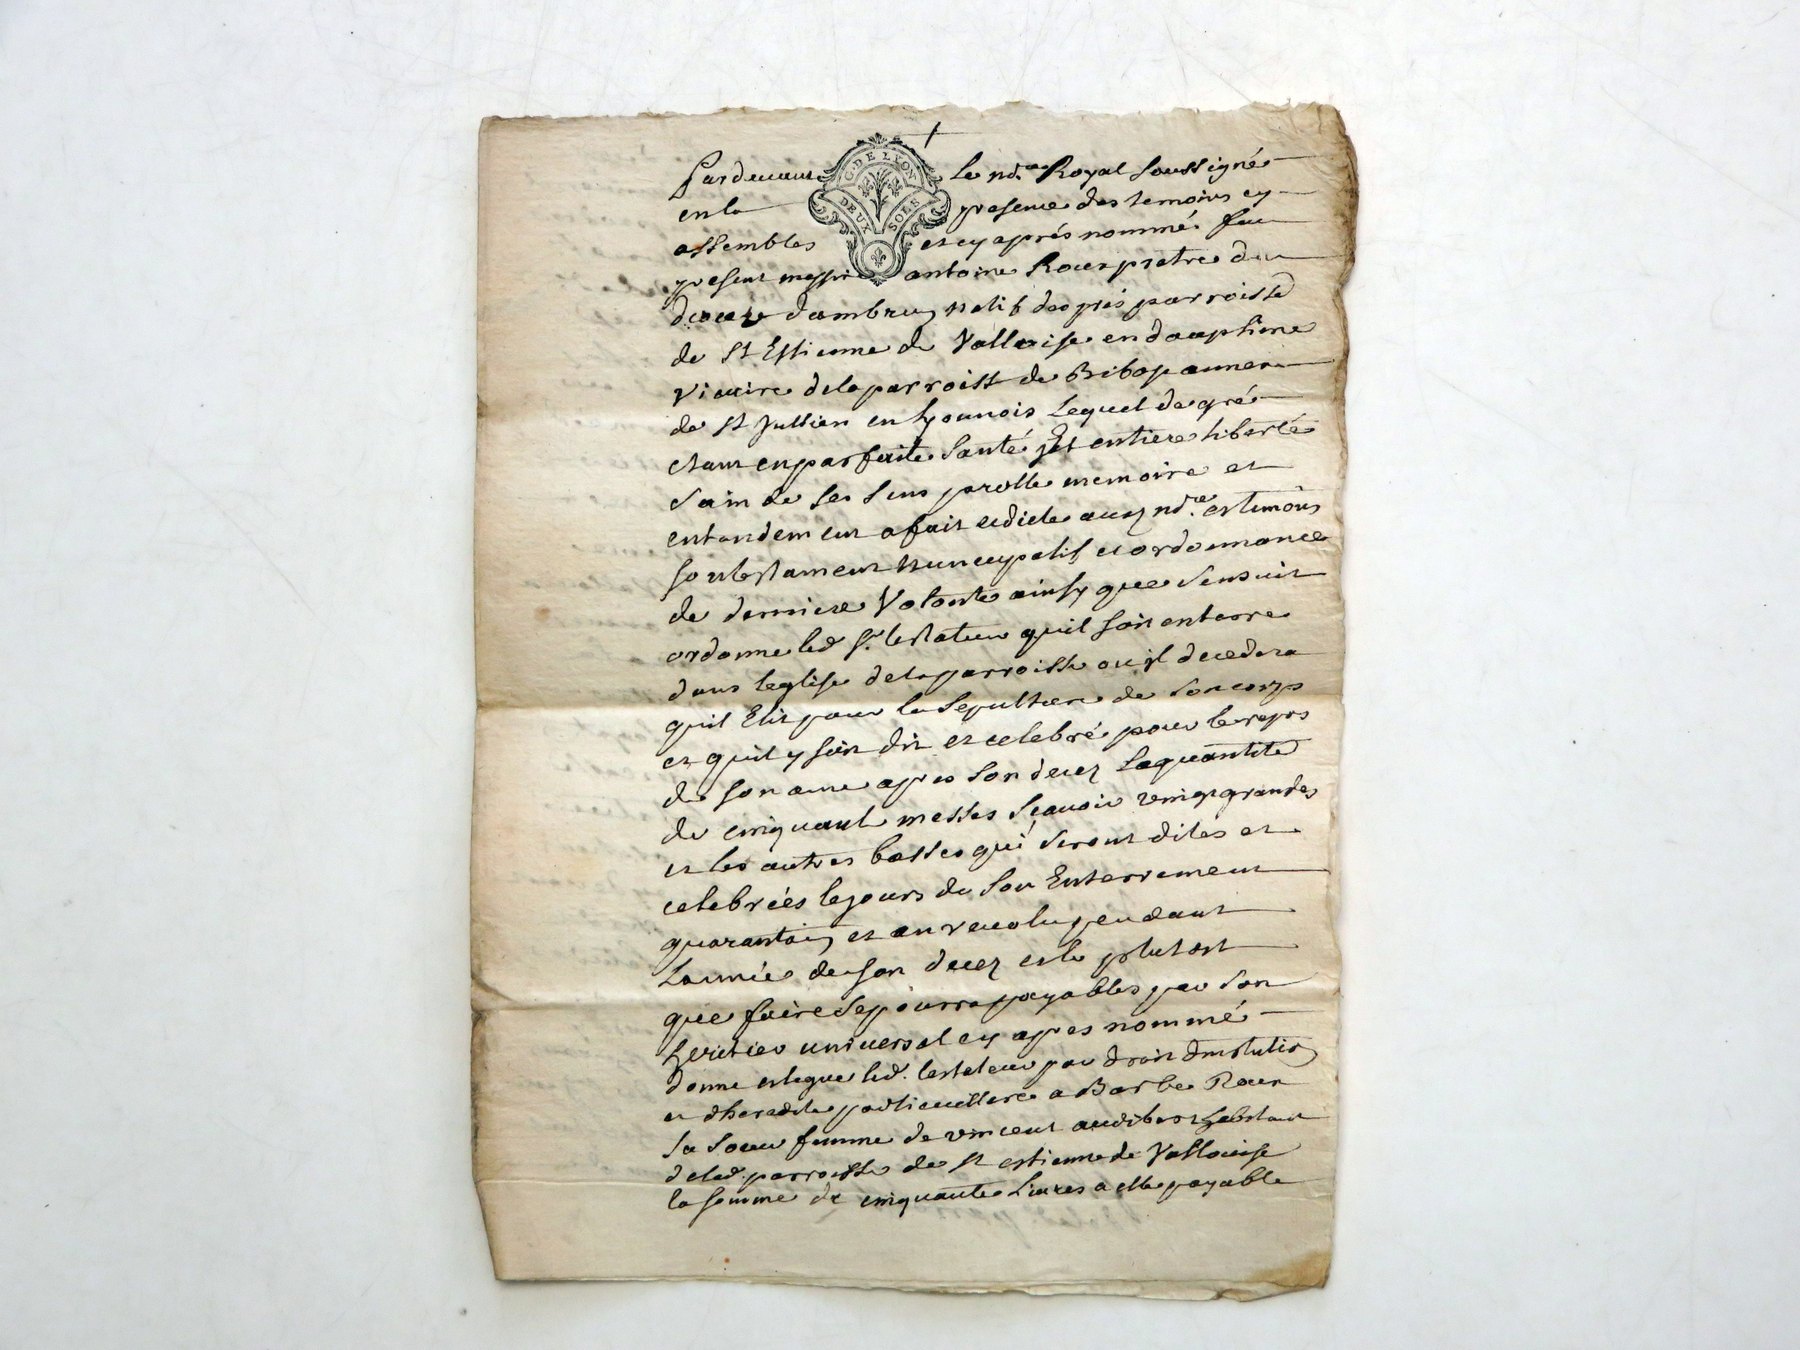 G. DE LYON
DEUX SOLS
Pardevant Le no.re Royal soussigné
en la presence des temoins cy
assemblés et cy aprés nommé fut
present messire antoine Roux pretre du
d'ambrun natif des prés parroisse
de St Estienne de Vallouise en dauphine
Vicaire de la parroisse de
de St Jullien en Lyonnois Lequel de gré
etant en parfaite santé Et entiere liberté
sain de ses sens parolle memoire et
entendement a fait et dicte aud no.re et temoins
son testament nuncupatif et ordonnance
de derniere Volonte ainsy que sensuit
ordonne led sr. testateur quil soit enterre
dans leglise de la parroisse ou il decedera
quil Elit pour la sepulture de son corps
et quil y soit dit et celebré pour le repos
de son ame apres son decez la quantite
de cinquante messes sçavoir vingt grandes
et les autres basses qui seront dites et
celebrées le jours de son Enterrement
quarantain et an revolu pendant
Lannée de son decez et le plutost
que faire se pourra payables par son
heritier universel cy apres nommé
donne et legue led. testateur par droit dinstution
et dheredite particulliere a Barbe Roux
sa soeur femme de vincent audibert habitant
delad. parroisse de st estienne de Vallouise
la somme de cinquante Livres a elle payable